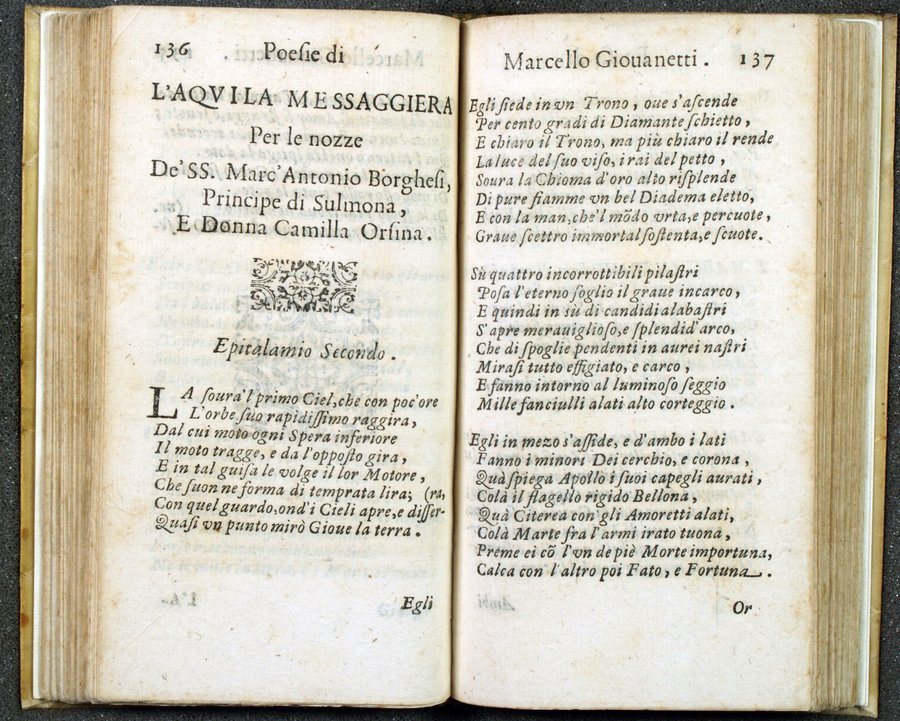 136 Poeſie di
L'AQVILA MESSAGGIERA
Per le nozze
De' SS. Marc' Antonio Borgheſi,
Principe di Sulmona,
E Donna Camilla Orſina.
Epitalamio Secondo.
LA ſoura'l primo Ciel, che con poc'ore
L'orbe ſuo rapidiſſimo raggira,
Dal cui moto ogni Spera inferiore
Il moto tragge, e da l'oppoſto gira,
E in tal guiſa le volge il lor Motore,
Che ſuon ne forma di temprata lira; (ra,
Con quel guardo, ond'i Cieli apre, e diſſer-
Quaſi vn punto mirò Gioue la terra.
Egli
Marcello Giouanetti. 137
Egli ſiede in vn Trono, oue s'aſcende
Per cento gradi di Diamante ſchietto,
E chiaro il Trono, ma più chiaro il rende
La luce del ſuo viſo, i rai del petto,
Soura la Chioma d'oro alto riſplende
Di pure fiamme vn bel Diadema eletto,
E con la man, che'l mõdo vrta, e percuote,
Graue ſcettro immortal ſoſtenta, e ſcuote.
Sù quattro incorrottibili pilaſtri
Poſa l'eterno ſoglio il graue incarco,
E quindi in sù di candidi alabaſtri
S'apre merauiglioſo, e ſplendid'arco,
Che di ſpoglie pendenti in aurei naſtri
Miraſi tutto effigiato, e carco,
E fanno intorno al luminoſo ſeggio
Mille fanciulli alati alto corteggio.
Egli in mezo s'aſſide, e d'ambo i lati
Fanno i minori Dei cerchio, e corona,
Quà ſpiega Apollo i ſuoi capegli aurati,
Colà il flagello rigido Bellona,
Quà Citerea con gli Amoretti alati,
Colà Marte fra l'armi irato tuona,
Preme ei cõ l'vn de piè Morte importuna,
Calca con l'altro poi Fato, e Fortuna.
Or